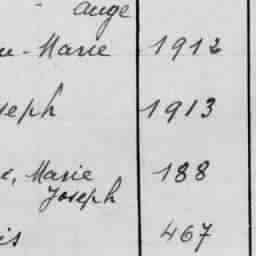 ange
-Marie 1912
seph 1913
, Marie 188
Joseph
467